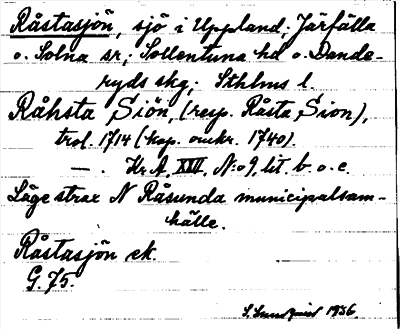 Råstasjön, sjö i Uppland; Järfälla
o. Solna sn; Sollentuna hd o. Dande-
ryds skg; Sthlms l.
Råhsta Siön, (resp. Råsta Sion),
trol. 1714 (kop. omkr. 1740).
—. Kr.A. XVII, N:o 9, lit. b. o. c.
Läge strax N Råsunda municipalsam-
hälle.
Råstasjön ek.
G. 75.
S. Lundquist 1936.